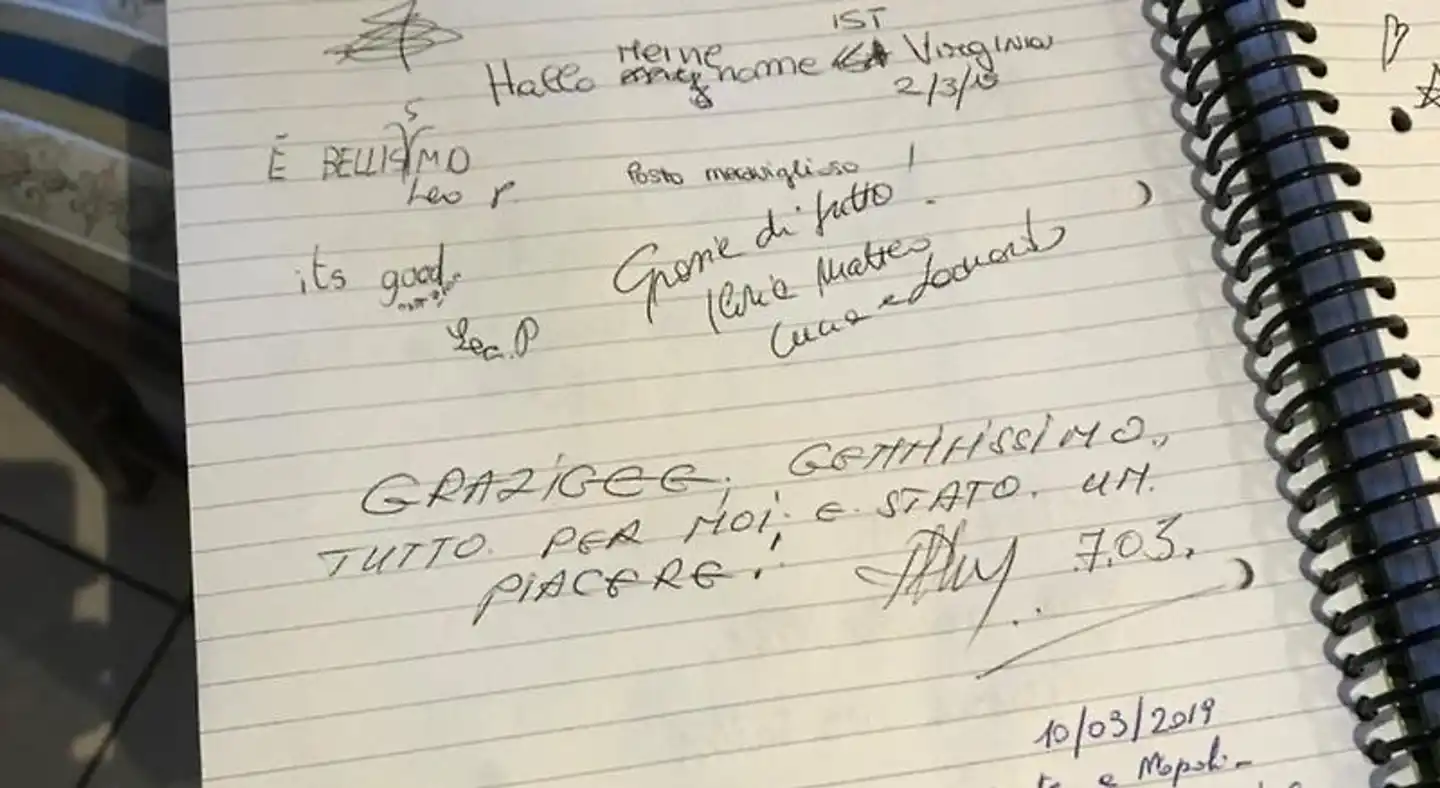 Hallo Meine name IST Virginia
2/3/19
È BELLISSIMO
Leo P.
Posto meraviglioso!
Grazie di tutto.
Ilaria Matteo
Luca e Leonardo
its good
Leo.P
GRAZIGEE; GEMHHISSIMO.,
TUTTO. PER MOI; E. STATO. UM.
PIACERE!
7.03.
10/03/2019
e Napoli-